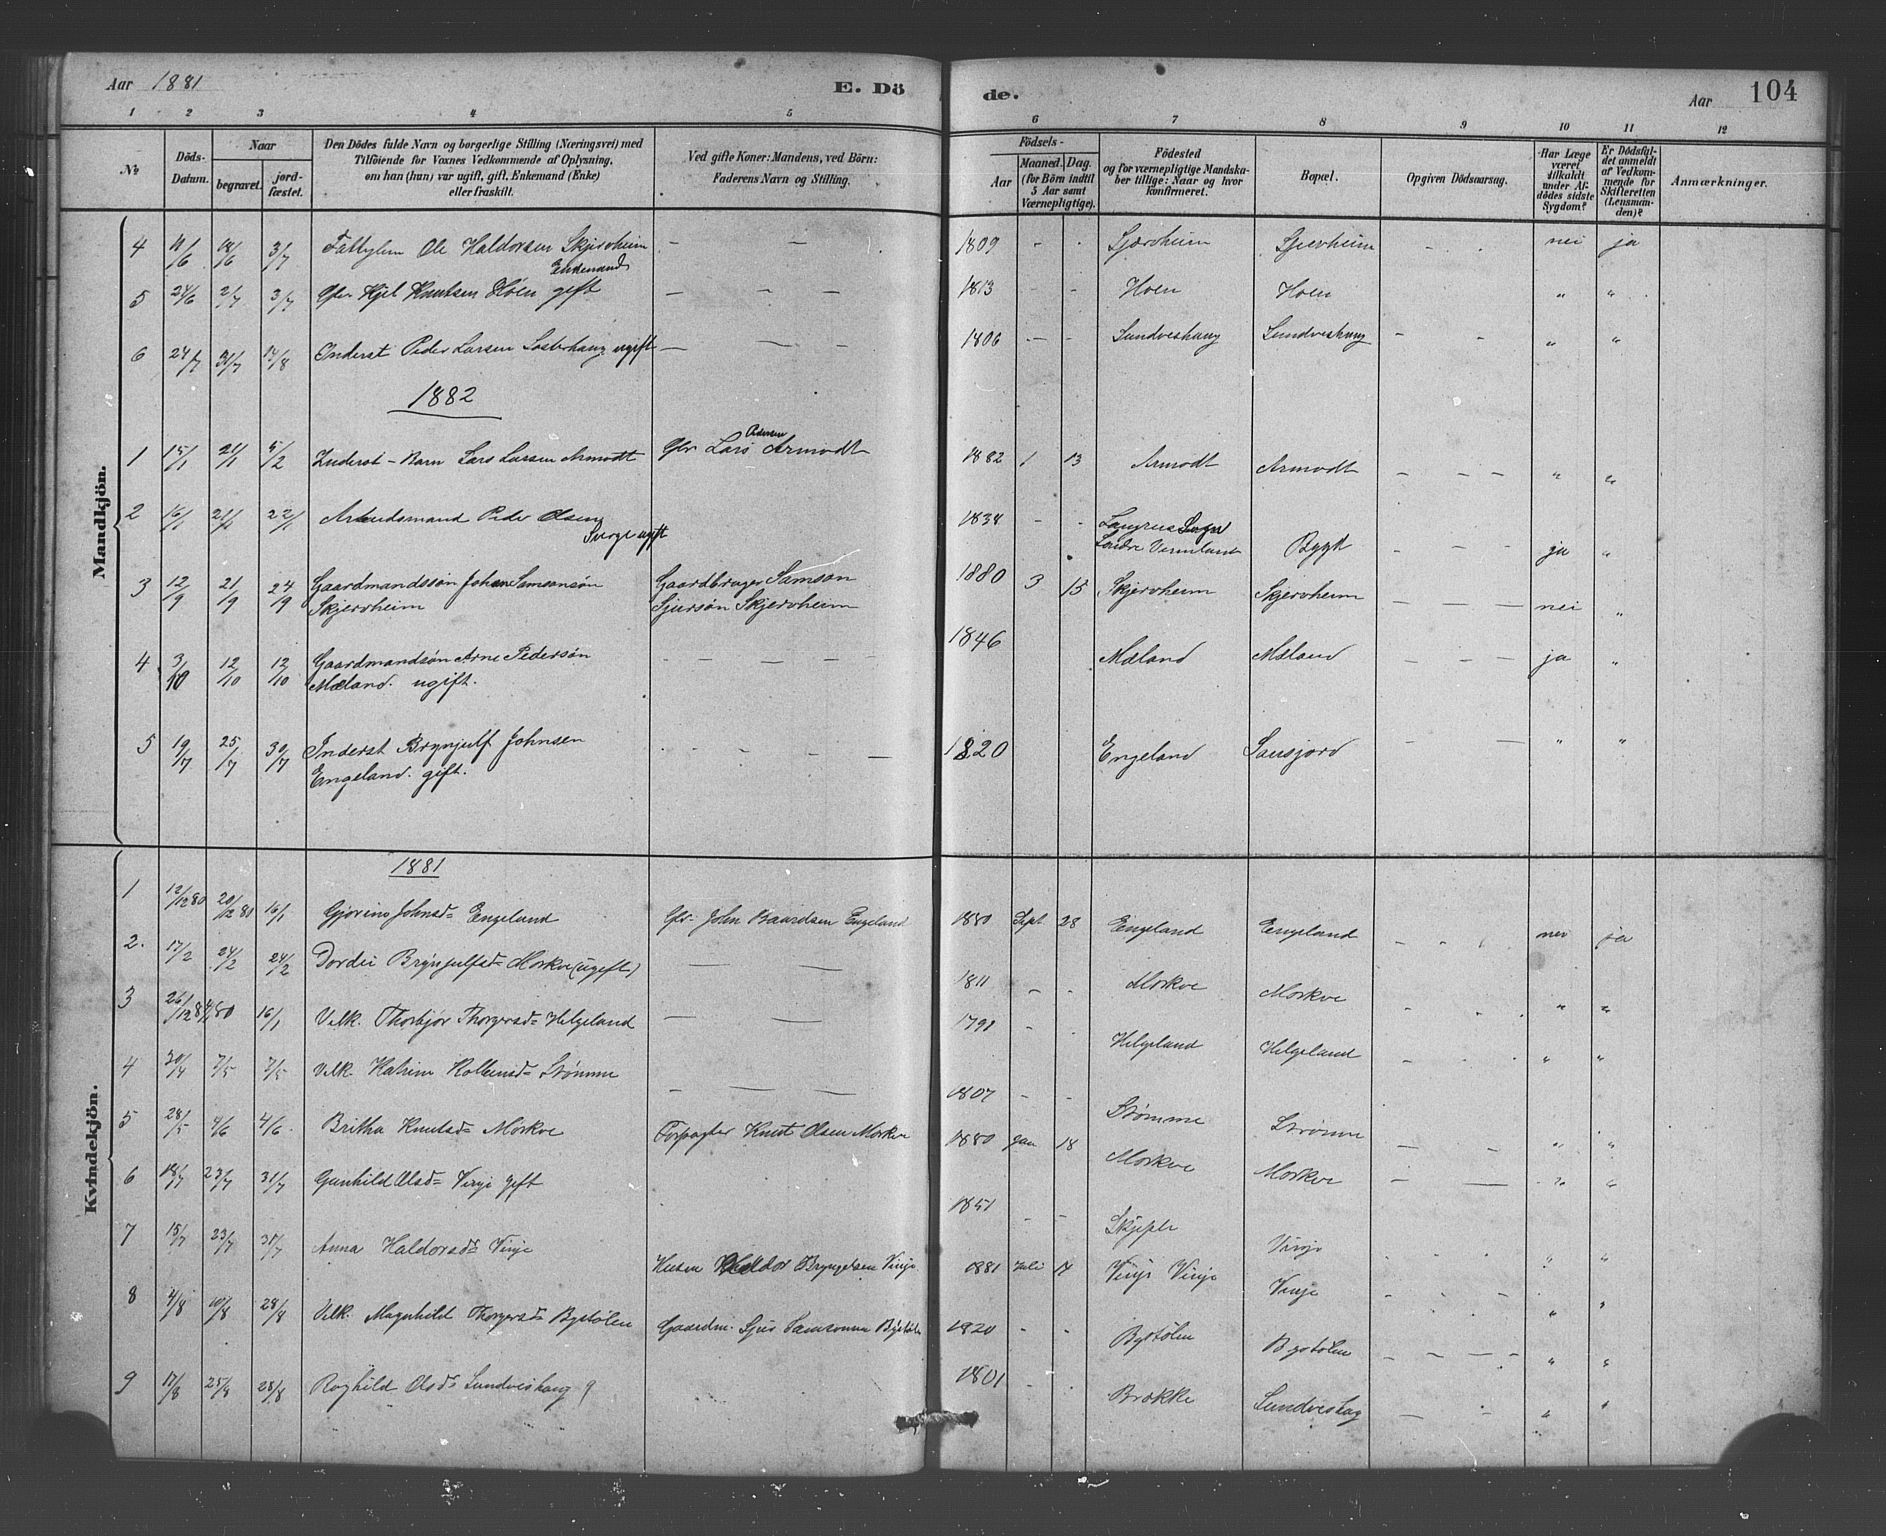 Aar 1881
E. Dö
de.
Aar
104
1 2 3 4 5 6 7 8 9 10 11 12
No
Döds-Datum.
Naar
begravet.
jord-fæstet.
Den Dödes fulde Navn og borgerlige Stilling (Næringsvei) med
Tilföiende for Voxnes Vedkommende af Oplysning,
om han (hun) var ugift, gift, Enkemand (Enke)
eller fraskilt.
Ved gifte Koner: Mandens, ved Börn:
Faderens Navn og Stilling.
Födsels-
Aar
Maaned. Dag.
(for Börn indtil
5 Aar samt
Værnepligtige).
Födested
og for værnepligtige Mandska-
ber tillige: Naar og hvor
konfirmeret.
Bopæl.
Opgiven Dödsaarsag.
Har Læge
været
tilkaldt
under Af-
dödes sidste
Sygdom?
Er Dödsful-
det anmeldt
af Vedkom-
mende for
Skifteretten
(Lensman-
den)?
Anmærkninger.
Mandkjön.
4 11/6 18/6 3/7 Ole Haldorsen Skjervheim Enkemand — — 1809 - - Sjærvheim Sjervheim - - nei ja
5 24/6 2/7 3/7 Gbr Kjel Knutsen Hoen gift — — — 1813 - - Hoen Hoen " "
6 24/7 31/7 14/8 Inderst Peder Larsen ugift — — — 1806 - - Sundveshaug Sundveshaug - - " "
1882
1 15/1 21/1 5/2 Inderst-Barn Lars Larsen Armodt Gbr Lars Pedersen Armodt 1882 1 13 Armodt Armodt - - - " "
2 16/1 21/1 22/1 Arbeidsmand Peder Olsen Sverge ugift 1838 - - Sogn Söndre Vermland Bygd - - - ja "
3 12/9 21/9 24/9 Gaardmandssön Johan Samsonsön
Skjervheim
Gaardbruger Samson
Sjursön Skjervheim
1880 3 15 Skjervheim Skjervheim - - - nei "
4 3/10 12/10 12/10 Gaardmandsön Arne Pedersön
Mæland. ugift.
- - - - 1846 Mæland Mæland - - - ja "
5 19/7 25/7 30/7 Inderst Brynjulf Johnsen
Engeland. gift.
- - - — 1820 Engeland - — " "
Kvindekjön.
1881
1 12/12 80 20/12 80 16/1 Gjorina Johnsd= Engeland Gbr. John Baardsen Engeland 1880 Sept 28 Engeland Engeland - - - nei ja
2. 17/2 24/2 24/2 Dordei Brynjulfsd= Morkve (ugift) — — 1811 - - Morkve Morkve " "
3 26/12 80 16/1 Velk. Thorbjør Thorgersd= Helgeland — — 1798 - - Helgeland Helgeland " "
4 30/4 7/5 7/5 Velk. Katrine Strømme — — 1807 - - Strømme Strømme " "
5 28/5 4/6 4/6 Britha Knutsd= Morkve Forpagter Knut Olsen Morkve 1880 Jan 18 Morkve Morkve " "
6 18/7 23/7 31/7 Gunhild Olsd= Vinje gift 1851 - - Skjeple Vinje " "
7 15/7 23/7 31/7 Anna Haldorsd= Vinje Husm Haldor Bryngelsen Vinje 1881 Juli 14 Vinje Vinje Vinje " "
8 4/8 10/8 28/8 Velk. Magnhild Thorgersd= Bystølen Gaardm. Sjur Samsonsen Bystølen 1820 - - Bystølen Bystølen " "
9 17/8 25/8 28/8 Raghild Olsd= Sundveshaug g 1801 - - Brække Sundveshag " "